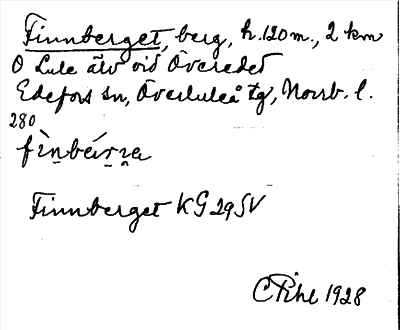 Finnberget, berg, h. 120 m., 2 km
O Lule älv vid Överedet
Edefors sn, Överluleå tg, Norrb. l.
280
Finnberget KG 29 SV
C Pihl 1928